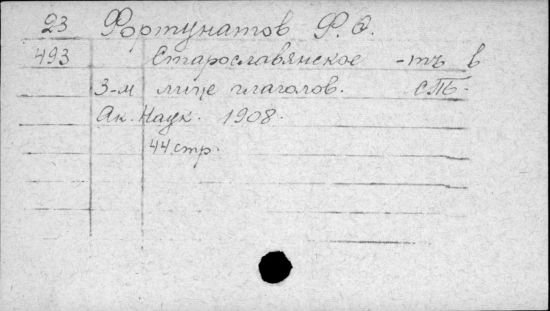 23 Фортунатов Ф. Ф.
493 Старославянское -тъ в
3-м лице глаголов. СПБ.
Ак. Наук. 1908.
44 стр.